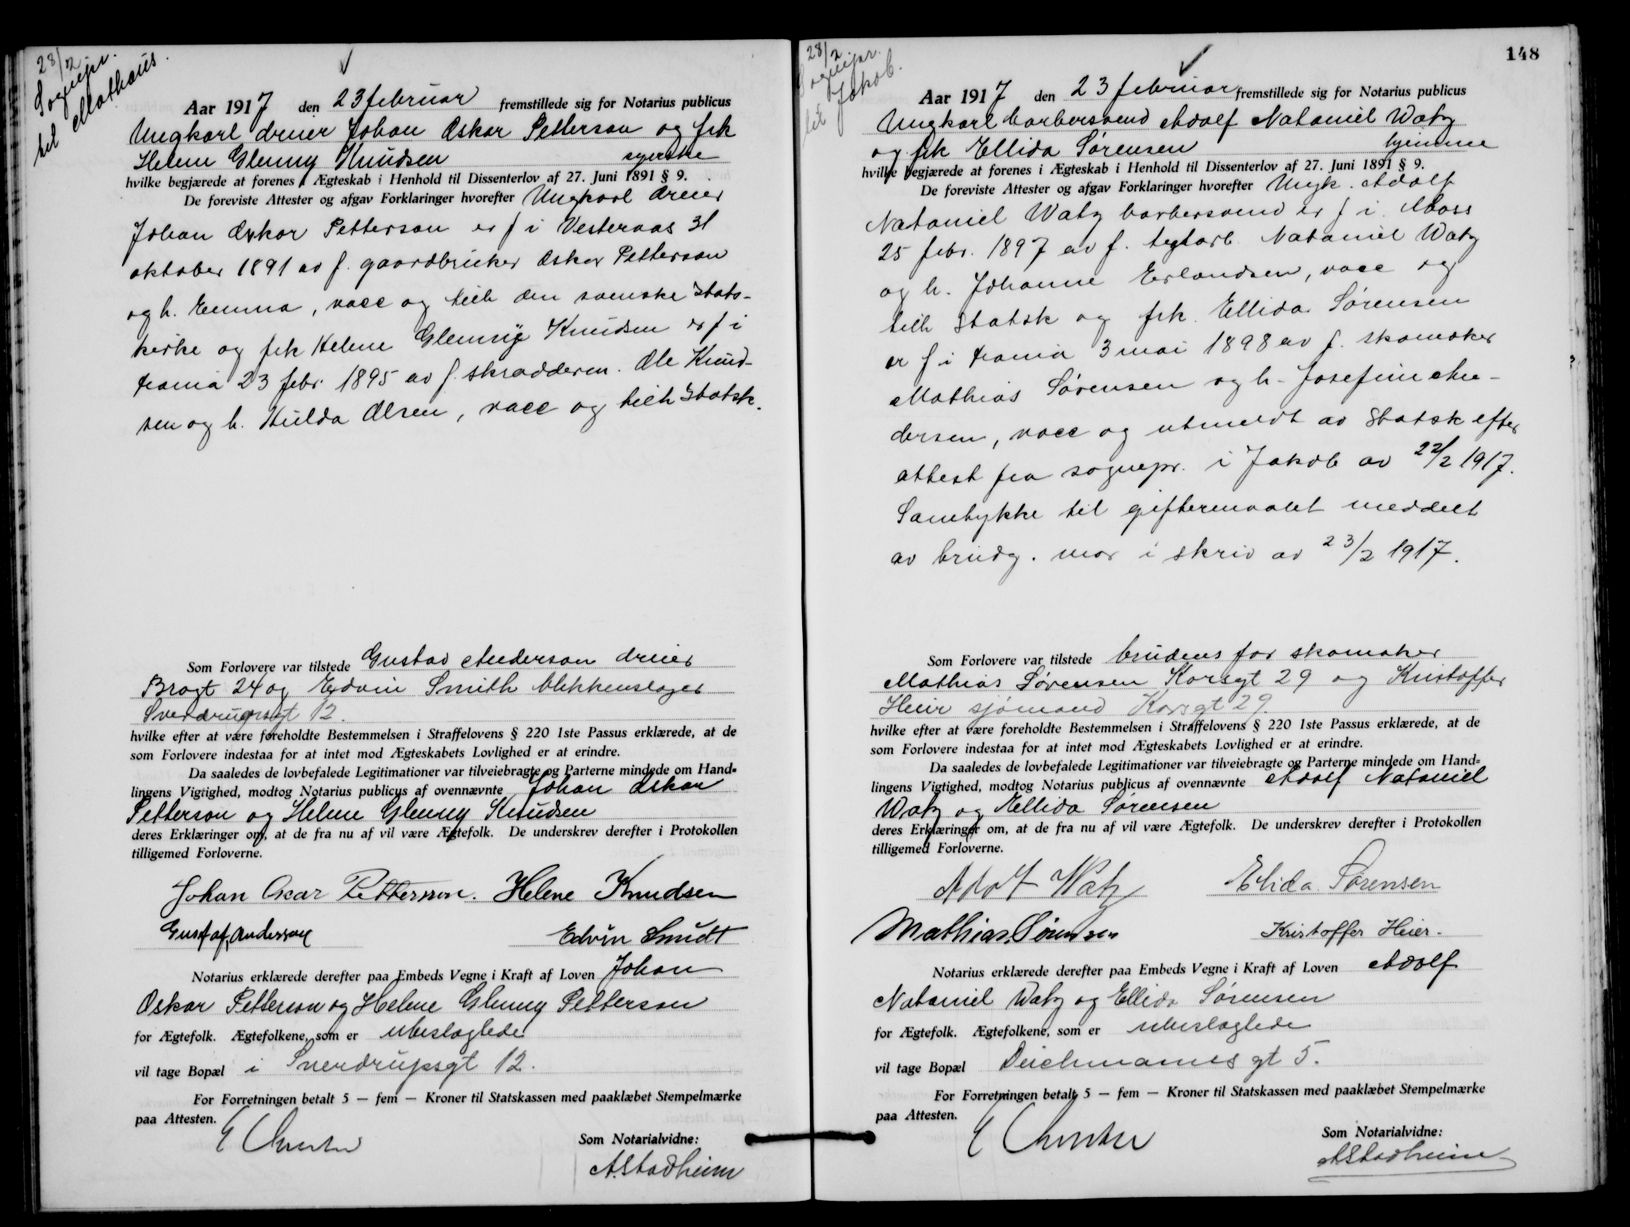 28/2
Sognepr.
til Mathæus.
Aar 1917 den 23 februar fremstillede sig for Notarius publicus
Ungkarl dreier Johan Oskar Petterson og frk
Helene Glenny Knudsen syerske
hvilke begjærede at forenes i Ægteskab i Henhold til Dissenterlov af 27. Juni 1891 § 9.
De foreviste Attester og afgav Forklaringer hvorefter Ungkarl dreier
Johan Oskar Petterson er f i Vesteraas 31
oktober 1891 av f. gaardbruker Oskar Petterson
og h. Emma, vacc og tilh den svenske Stats-
kirke og frk Helene Glenny Knudsen er f i
Krania 23 febr. 1895 av f. skrædderm. Ole Knud-
sen og h. Hulda Olsen, vacc og tilh Statsk.
Som Forlovere var tilstede Gustav Anderson dreier
Bragt 24 og Edvin Smith blikkenslager
Sverdrupsgt 12.
hvilke efter at være foreholdte Bestemmelsen i Straffelovens § 220 1ste Passus erklærede, at de
som Forlovere indestaa for at intet mod Ægteskabets Lovlighed er at erindre.
Da saaledes de lovbefalede Legitimationer var tilveiebragte og Parterne mindede om Hand=
lingens Vigtighed, modtog Notarius publicus af ovennævnte Johan Oskar
Petterson og Helene Glenny Knudsen
deres Erklæringer om, at de fra nu af vil være Ægtefolk. De underskrev derefter i Protokollen
tilligemed Forloverne.
Johan Oscar Petterson. Helene Knudsen
Gustaf Anderson Edvin Smidt
Notarius erklærede derefter paa Embeds Vegne i Kraft af Loven Johan
Oskar Petterson og Helene Glenny Petterson
for Ægtefolk. Ægtefolkene, som er ubeslægtede
vil tage Bopæl i Sverdrupsgt 12.
For Forretningen betalt 5 — fem — Kroner til Statskassen med paaklæbet Stempelmærke
paa Attesten.
Som Notarialvidne:
A. Stadheim
148
28/2
Sognepr.
til Jakob.
Aar 1917 den 23 februar fremstillede sig for Notarius publicus
Ungkarl barbersvend Adolf Nataniel Watz
og frk Ellida Sørensen hjemme
hvilke begjærede at forenes i Ægteskab i Henhold til Dissenterlov af 27. Juni 1891 § 9.
De foreviste Attester og afgav Forklaringer hvorefter Ungk. Adolf
Nataniel Watz barbersvend er f i Moss
25 febr. 1897 av f. teglarb. Nataniel Watz
og h. Johanne Erlandsen, vacc og
tilh Statsk og frk. Ellida Sørensen
er f i Krania 3 mai 1898 av f. skomaker
Mathias Sørensen og h. Josefine An-
dersen, vacc og utmeldt av Statsk efter
attest fra sognepr. i Jakob av 22/2 1917.
Samtykke til giftermaalet meddelt
av brudg. mor i skriv av 23/2 1917.
Som Forlovere var tilstede brudens far skomaker
Mathias Sørensen Korsgt 29 og Kristoffer
Heier sjømand Korsgt 29.
hvilke efter at være foreholdte Bestemmelsen i Straffelovens § 220 1ste Passus erklærede, at de
som Forlovere indestaa for at intet mod Ægteskabets Lovlighed er at erindre.
Da saaledes de lovbefalede Legitimationer var tilveiebragte og Parterne mindede om Hand=
lingens Vigtighed, modtog Notarius publicus af ovennævnte Adolf Nataniel
Watz og Ellida Sørensen
deres Erklæringer om, at de fra nu af vil være Ægtefolk. De underskrev derefter i Protokollen
tilligemed Forloverne.
Adolf Watz Elida Sørensen
Mathias Sørensen Kristoffer Heier.
Notarius erklærede derefter paa Embeds Vegne i Kraft af Loven Adolf
Nataniel Watz og Ellida Sørensen
for Ægtefolk. Ægtefolkene, som er ubeslægtede
vil tage Bopæl Deichmanns gt 5.
For Forretningen betalt 5 — fem — Kroner til Statskassen med paaklæbet Stempelmærke
paa Attesten.
Som Notarialvidne:
A Stadheim